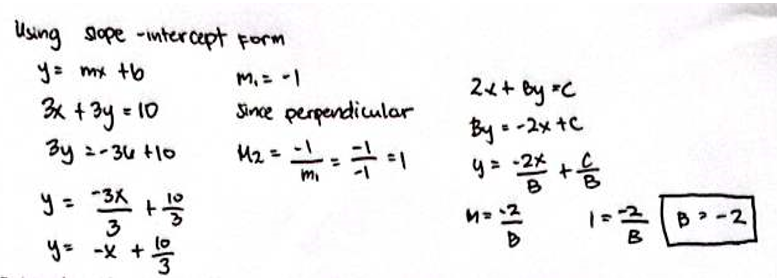 Using slope-intercept form
y = mx + b
3x + 3y = 10
3y = -3x + 10
y = -3x/3 + 10/3
y = -x + 10/3
m₁ = -1
since perpendicular
M₂ = -1/m₁ = -1/-1 = 1
2x + By = C
By = -2x + C
y = -2x/B + C/B
M = -2/B
1 = -2/B
B = -2